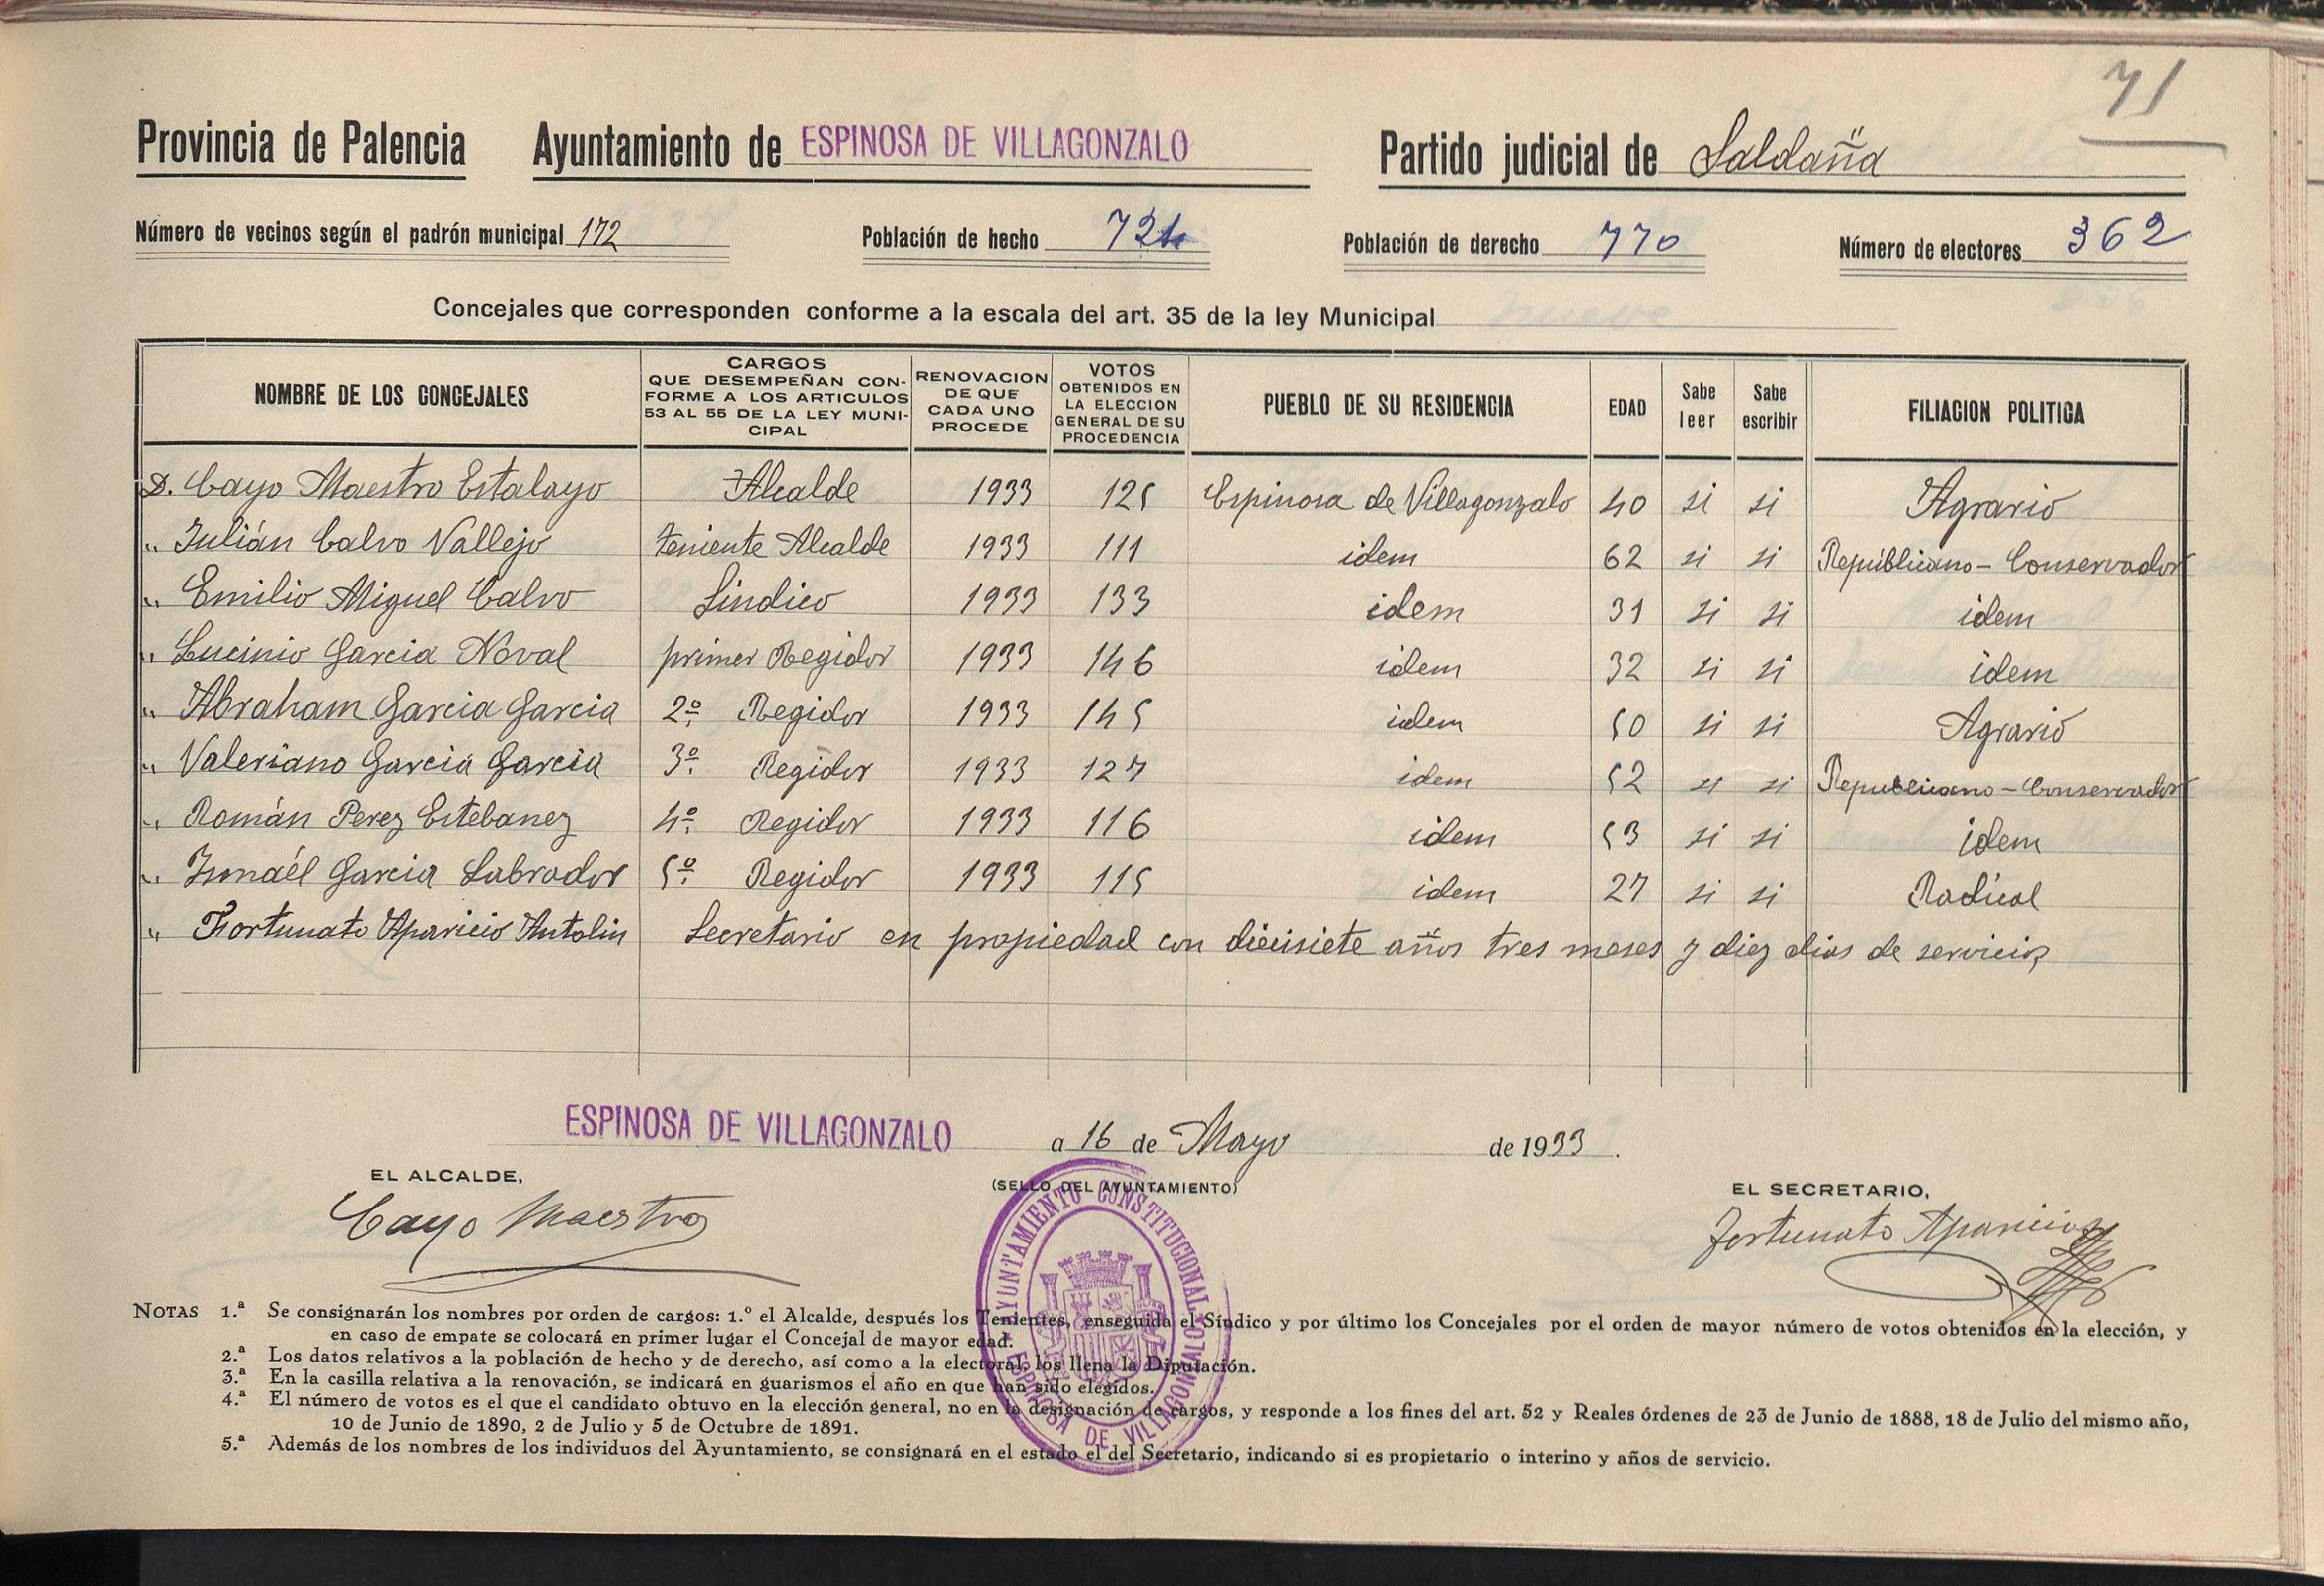 71
Provincia de Palencia Ayuntamiento de ESPINOSA DE VILLAGONZALO Partido judicial de Saldaña
Número de vecinos según el padrón municipal 172 Población de hecho 724 Población de derecho 770 Número de electores 362
Concejales que corresponden conforme a la escala del art. 35 de la ley Municipal
NOMBRE DE LOS CONCEJALES
CARGOS
QUE DESEMPEÑAN CON-
FORME A LOS ARTICULOS
53 AL 55 DE LA LEY MUNI-
CIPAL
RENOVACION
DE QUE
CADA UNO
PROCEDE
VOTOS
OBTENIDOS EN
LA ELECCION
GENERAL DE SU
PROCEDENCIA
PUEBLO DE SU RESIDENCIA
EDAD
Sabe
leer
Sabe
escribir
FILIACION POLITICA
D. Cayo Maestro Estalayo Alcalde 1933 125 Espinosa de Villagonzalo 40 si si Agrario
" Julián Calvo Vallejo teniente Alcalde 1933 111 idem 62 si si Republicano - Conservador
" Emilio Miguel Calvo Sindico 1933 133 idem 31 si si idem
" Lucinio Garcia Noval primer Regidor 1933 146 idem 32 si si idem
" Abraham Garcia Garcia 2º Regidor 1933 145 idem 50 si si Agrario
" Valeriano Garcia Garcia 3º Regidor 1933 127 idem 52 si si Republicano - Conservador
" Román Perez Estebanez 4º Regidor 1933 116 idem 53 si si idem
" Ismaél Garcia Labrador 5º Regidor 1933 115 idem 27 si si Radical
" Fortunato Aparicio Antolin Secretario en propiedad con diecisiete años tres meses y diez dias de servicios
ESPINOSA DE VILLAGONZALO a 16 de Mayo de 1933.
EL ALCALDE, (SELLO DEL AYUNTAMIENTO) EL SECRETARIO,
Cayo Maestro Fortunato Aparicio
AYUNTAMIENTO CONSTITUCIONAL
ESPINOSA DE VILLAGONZALO
NOTAS 1.ª Se consignarán los nombres por orden de cargos: 1.º el Alcalde, después los Tenientes, enseguida el Síndico y por último los Concejales por el orden de mayor número de votos obtenidos en la elección, y
en caso de empate se colocará en primer lugar el Concejal de mayor edad.
2.ª Los datos relativos a la población de hecho y de derecho, así como a la electoral, los llena la Diputación.
3.ª En la casilla relativa a la renovación, se indicará en guarismos el año en que han sido elegidos.
4.ª El número de votos es el que el candidato obtuvo en la elección general, no en la designación de cargos, y responde a los fines del art. 52 y Reales órdenes de 23 de Junio de 1888, 18 de Julio del mismo año,
10 de Junio de 1890, 2 de Julio y 5 de Octubre de 1891.
5.ª Además de los nombres de los individuos del Ayuntamiento, se consignará en el estado el del Secretario, indicando si es propietario o interino y años de servicio.